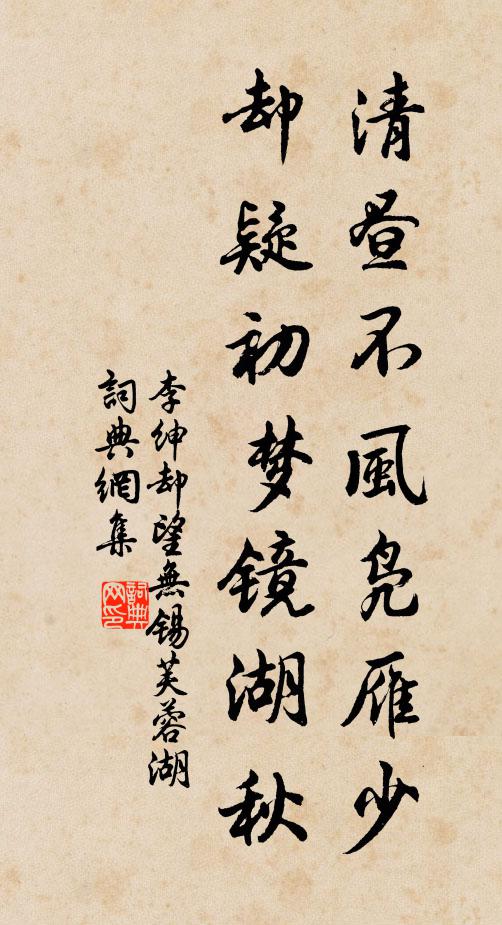 清昼不風鳧雁少
却疑初梦镜湖秋
李紳却望無锡芙蓉湖
詞典網集
詞典
网印